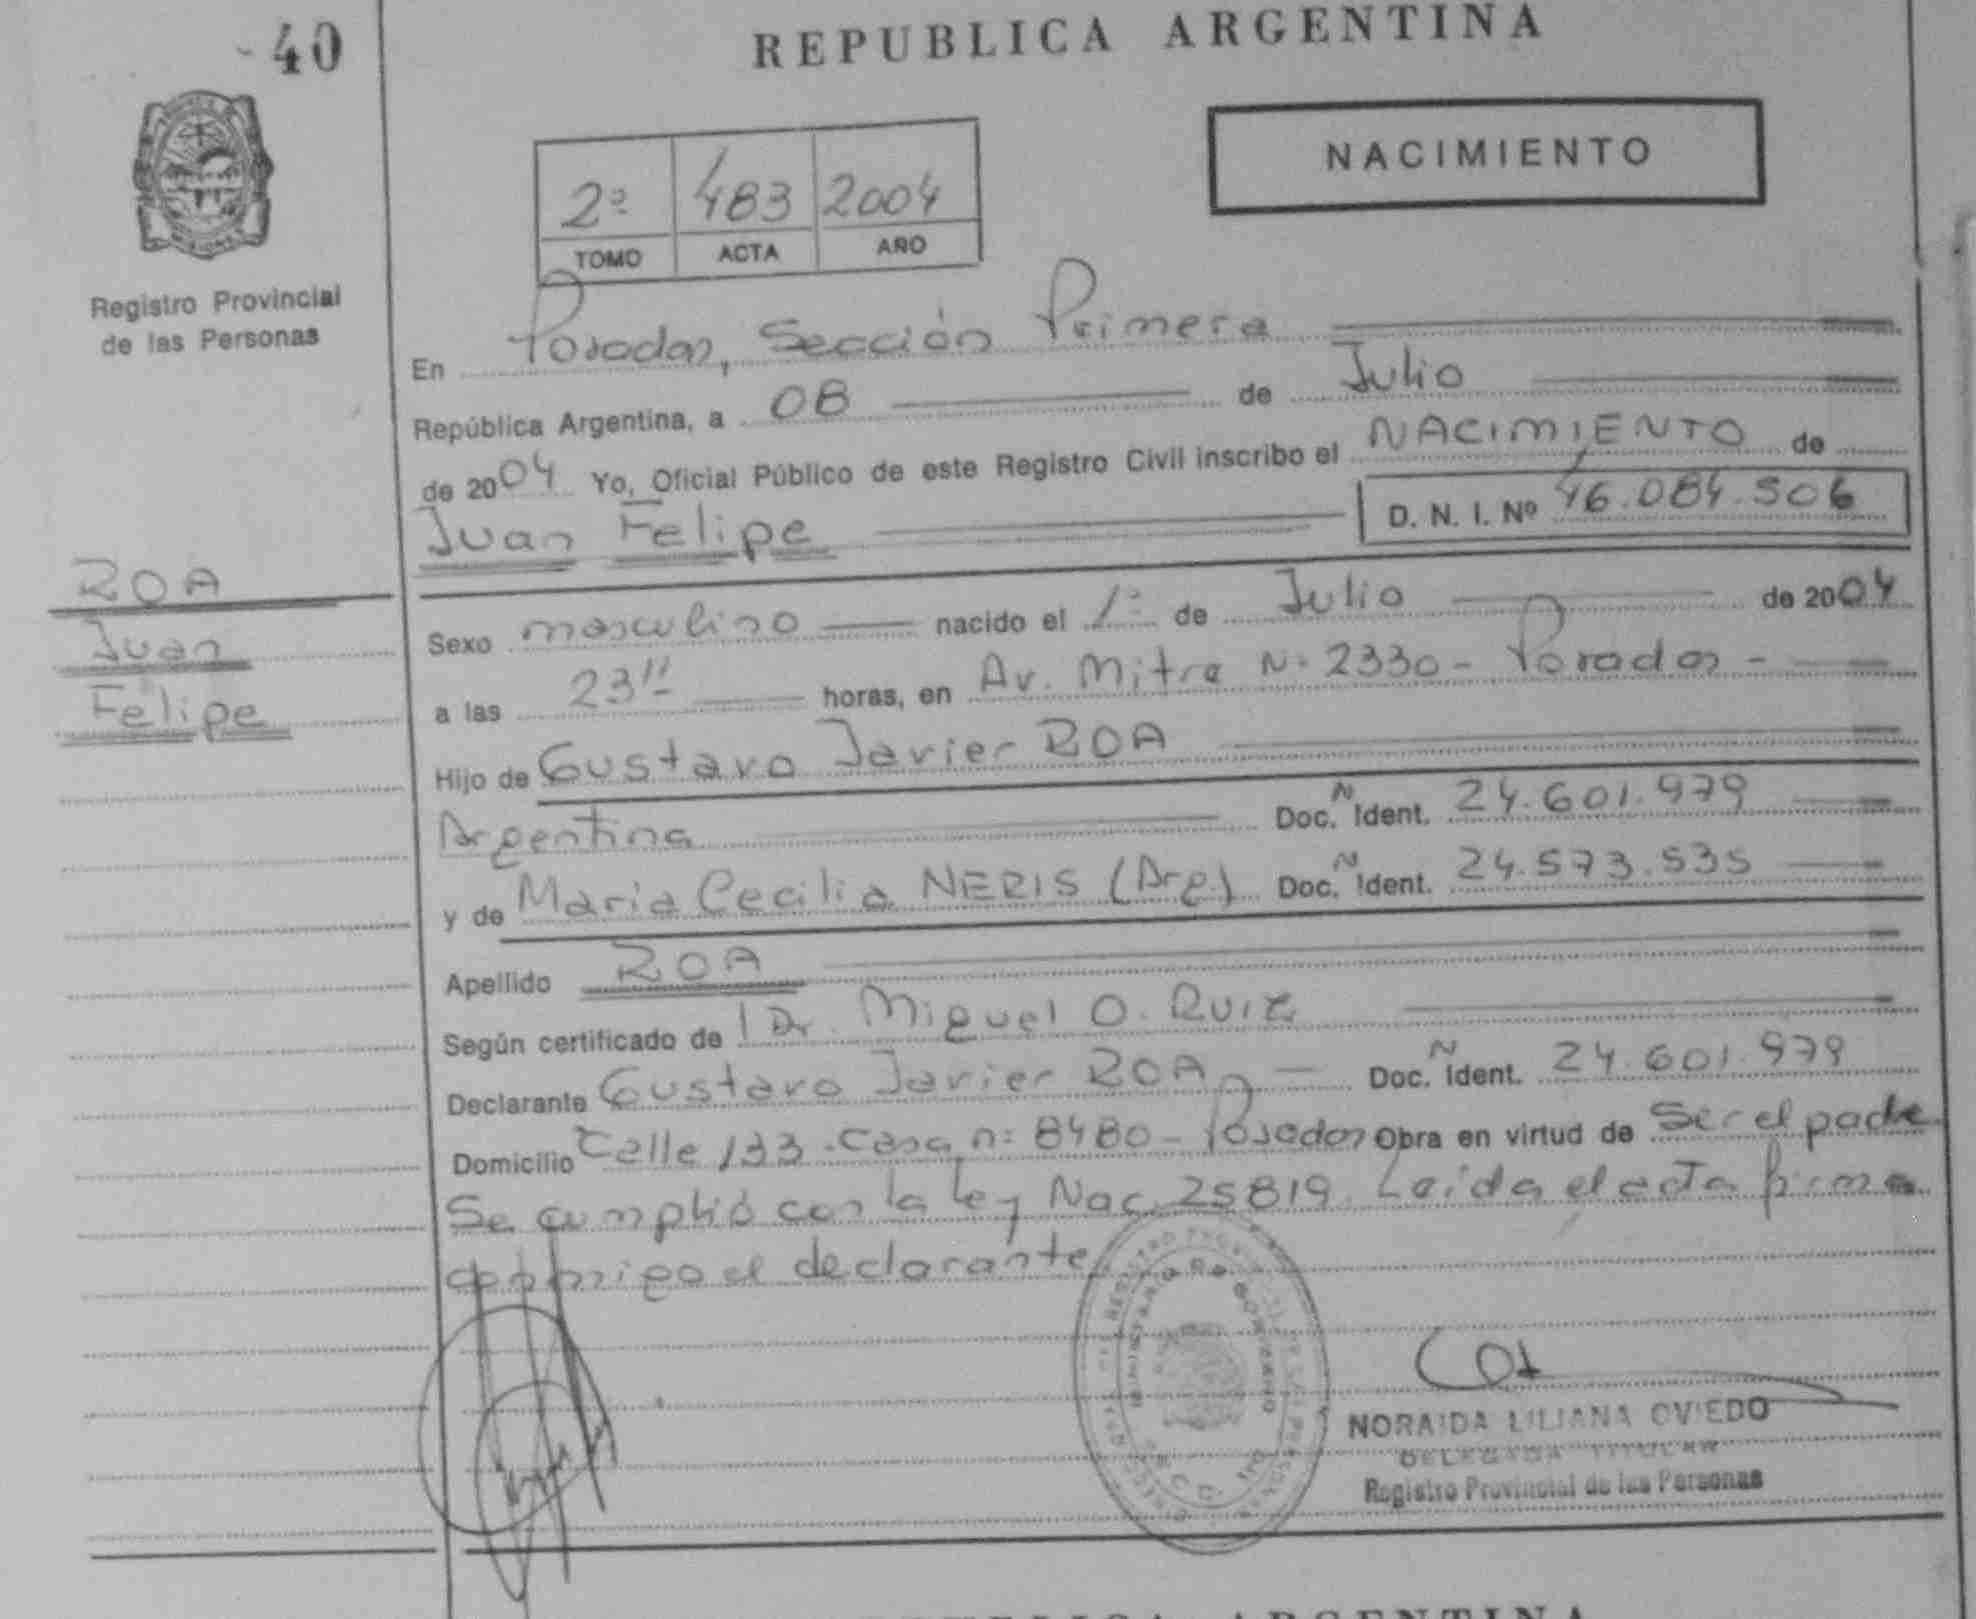 40
REPUBLICA ARGENTINA
NACIMIENTO
2º 483 2004
TOMO ACTA AÑO
Registro Provincial
de las Personas
En Posadas, Sección Primera
República Argentina, a 08 de Julio
de 2004 Yo, Oficial Público de este Registro Civil inscribo el NACIMIENTO de
Juan Felipe D. N. I. Nº 46.084.506
ROA
Juan
Felipe
Sexo masculino nacido el 1º de Julio de 2004
a las 23 horas, en Av. Mitre Nº 2330 - Posadas -
Hijo de Gustavo Javier ROA
Argentina Doc. N Ident. 24.601.979
y de Maria Cecilia NERIS (Arg.) Doc. N Ident. 24.573.535
Apellido ROA
Según certificado de Dr. Miguel O. Ruiz
Declarante Gustavo Javier ROA - Doc. N Ident. 24.601.979
Domicilio Calle 133 - Casa nº 8480 - Posadas Obra en virtud de Ser el padre
Se cumplió con la ley Nac. 25819. Leída el acta firma
conmigo el declarante
NORAIDA LILIANA OVIEDO
DELEGADA TITULAR
Registro Provincial de las Personas
REPUBLICA ARGENTINA